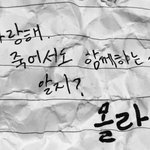 랑해.
죽어서도 함께하는
알지?
몰라